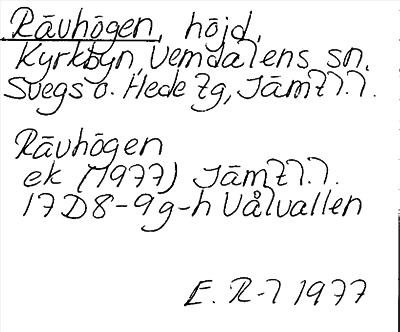 Rävhögen, höjd,
Kyrkbyn, Vemdalens sn,
Svegs o. Hede tg, Jämtl.l.
Rävhögen
ek (1977) Jämtl.l.
17D8-9g-h Vålvallen
E. R-l 1977